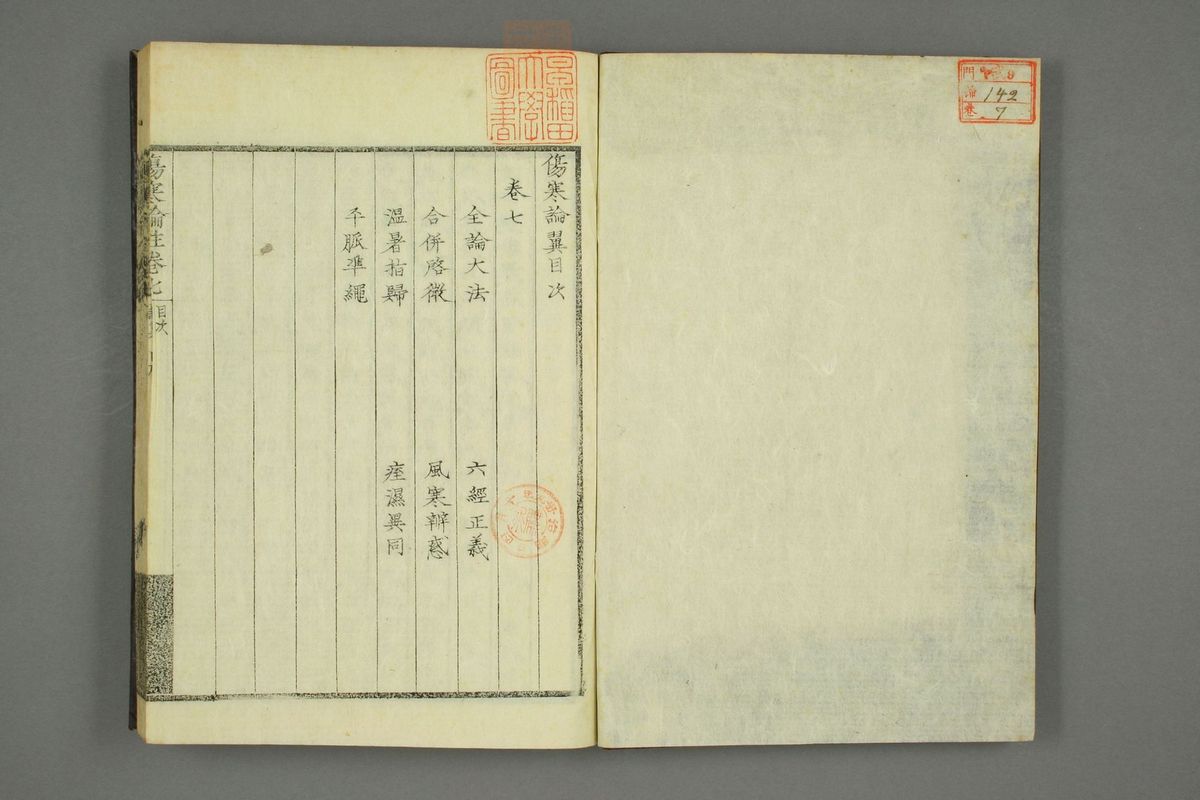 傷寒論翼目次
卷七
全論大法　六經正義
合併啓微　風寒辨惑
溫暑指歸　痙濕異同
平脈準繩
傷寒論註卷七
目次
早稲田大學圖書
門
卷
142
7